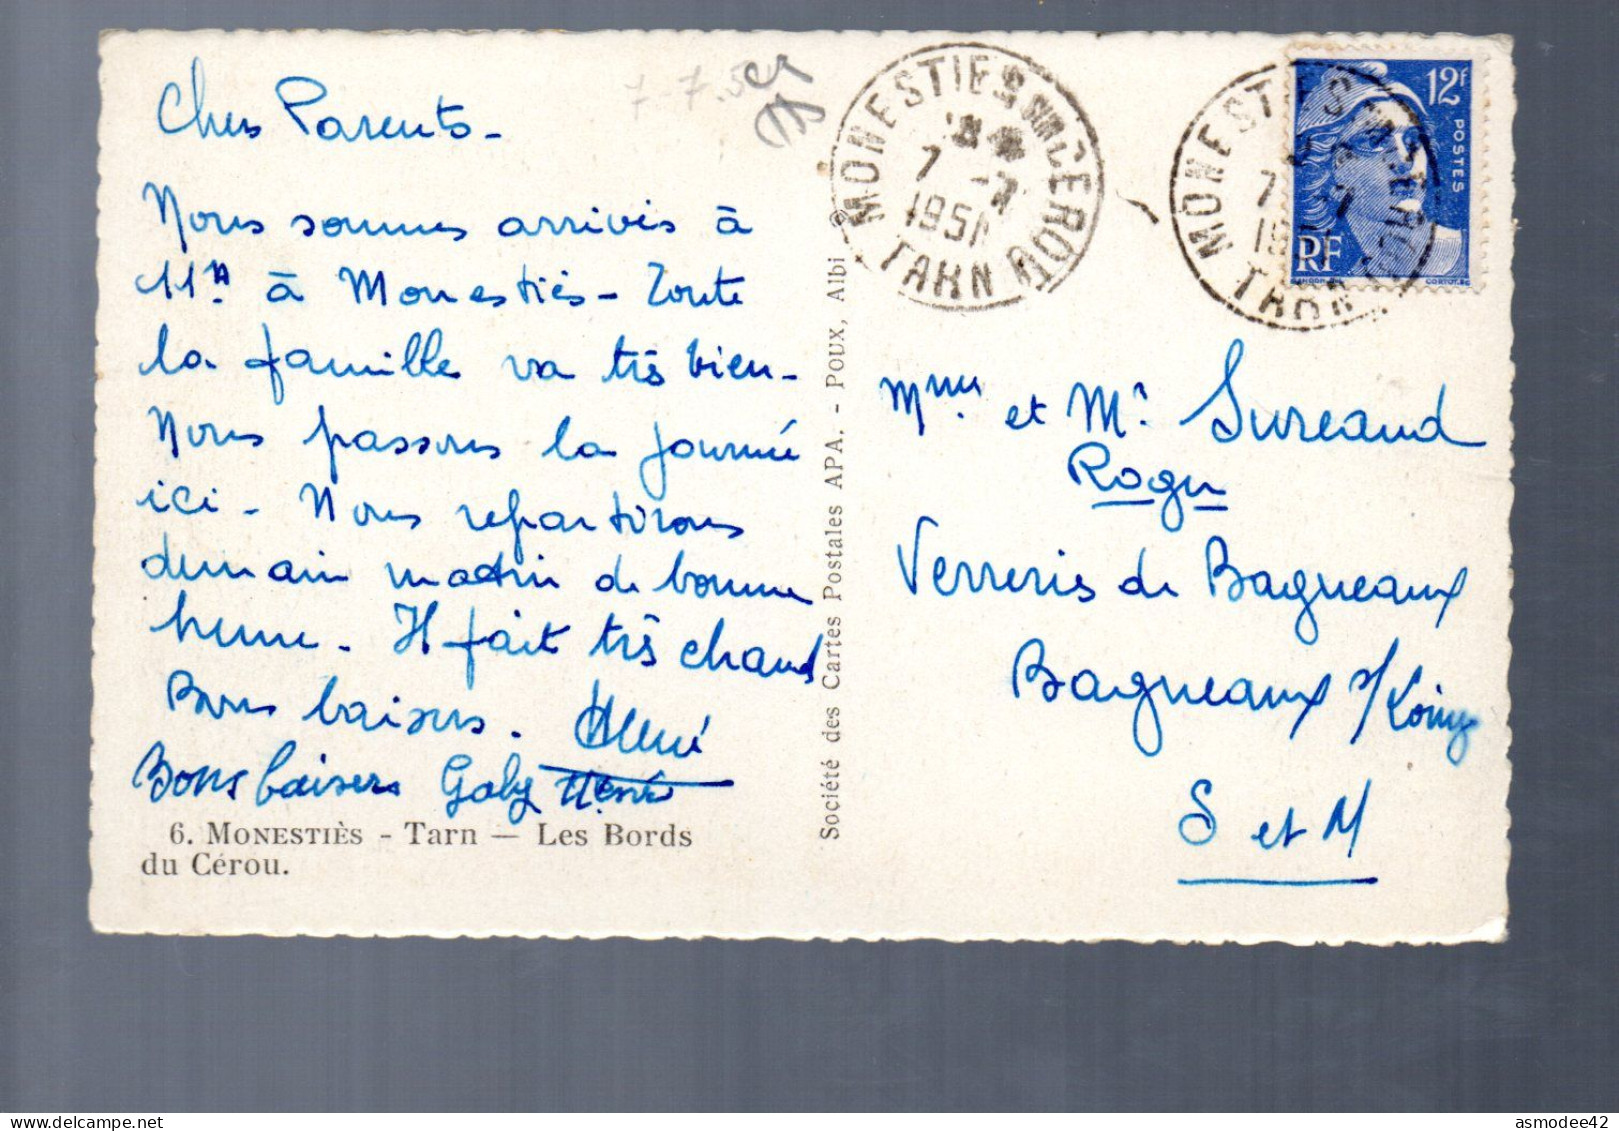 Chers Parents -
Nous sommes arrivés à
11h à Monestiès - Toute
la famille va très bien -
Nous passons la journée
ici - Nous repartirons
demain matin de bonne
heure - Il fait très chaud
Bons baisers.
Bons baisers Gaby
6. MONESTIÈS - Tarn — Les Bords
du Cérou.
Société des Cartes Postales APA. - POUX, Albi
7-7.51
MONESTIES SUR CEROU
7 -7
1951
TARN
MONESTIES
TARN
12f
POSTES
RF
Mme et Mr Sureaud
Roger
Verreries de Bagneaux
Bagneaux s/Loing
S et M
asmodee42